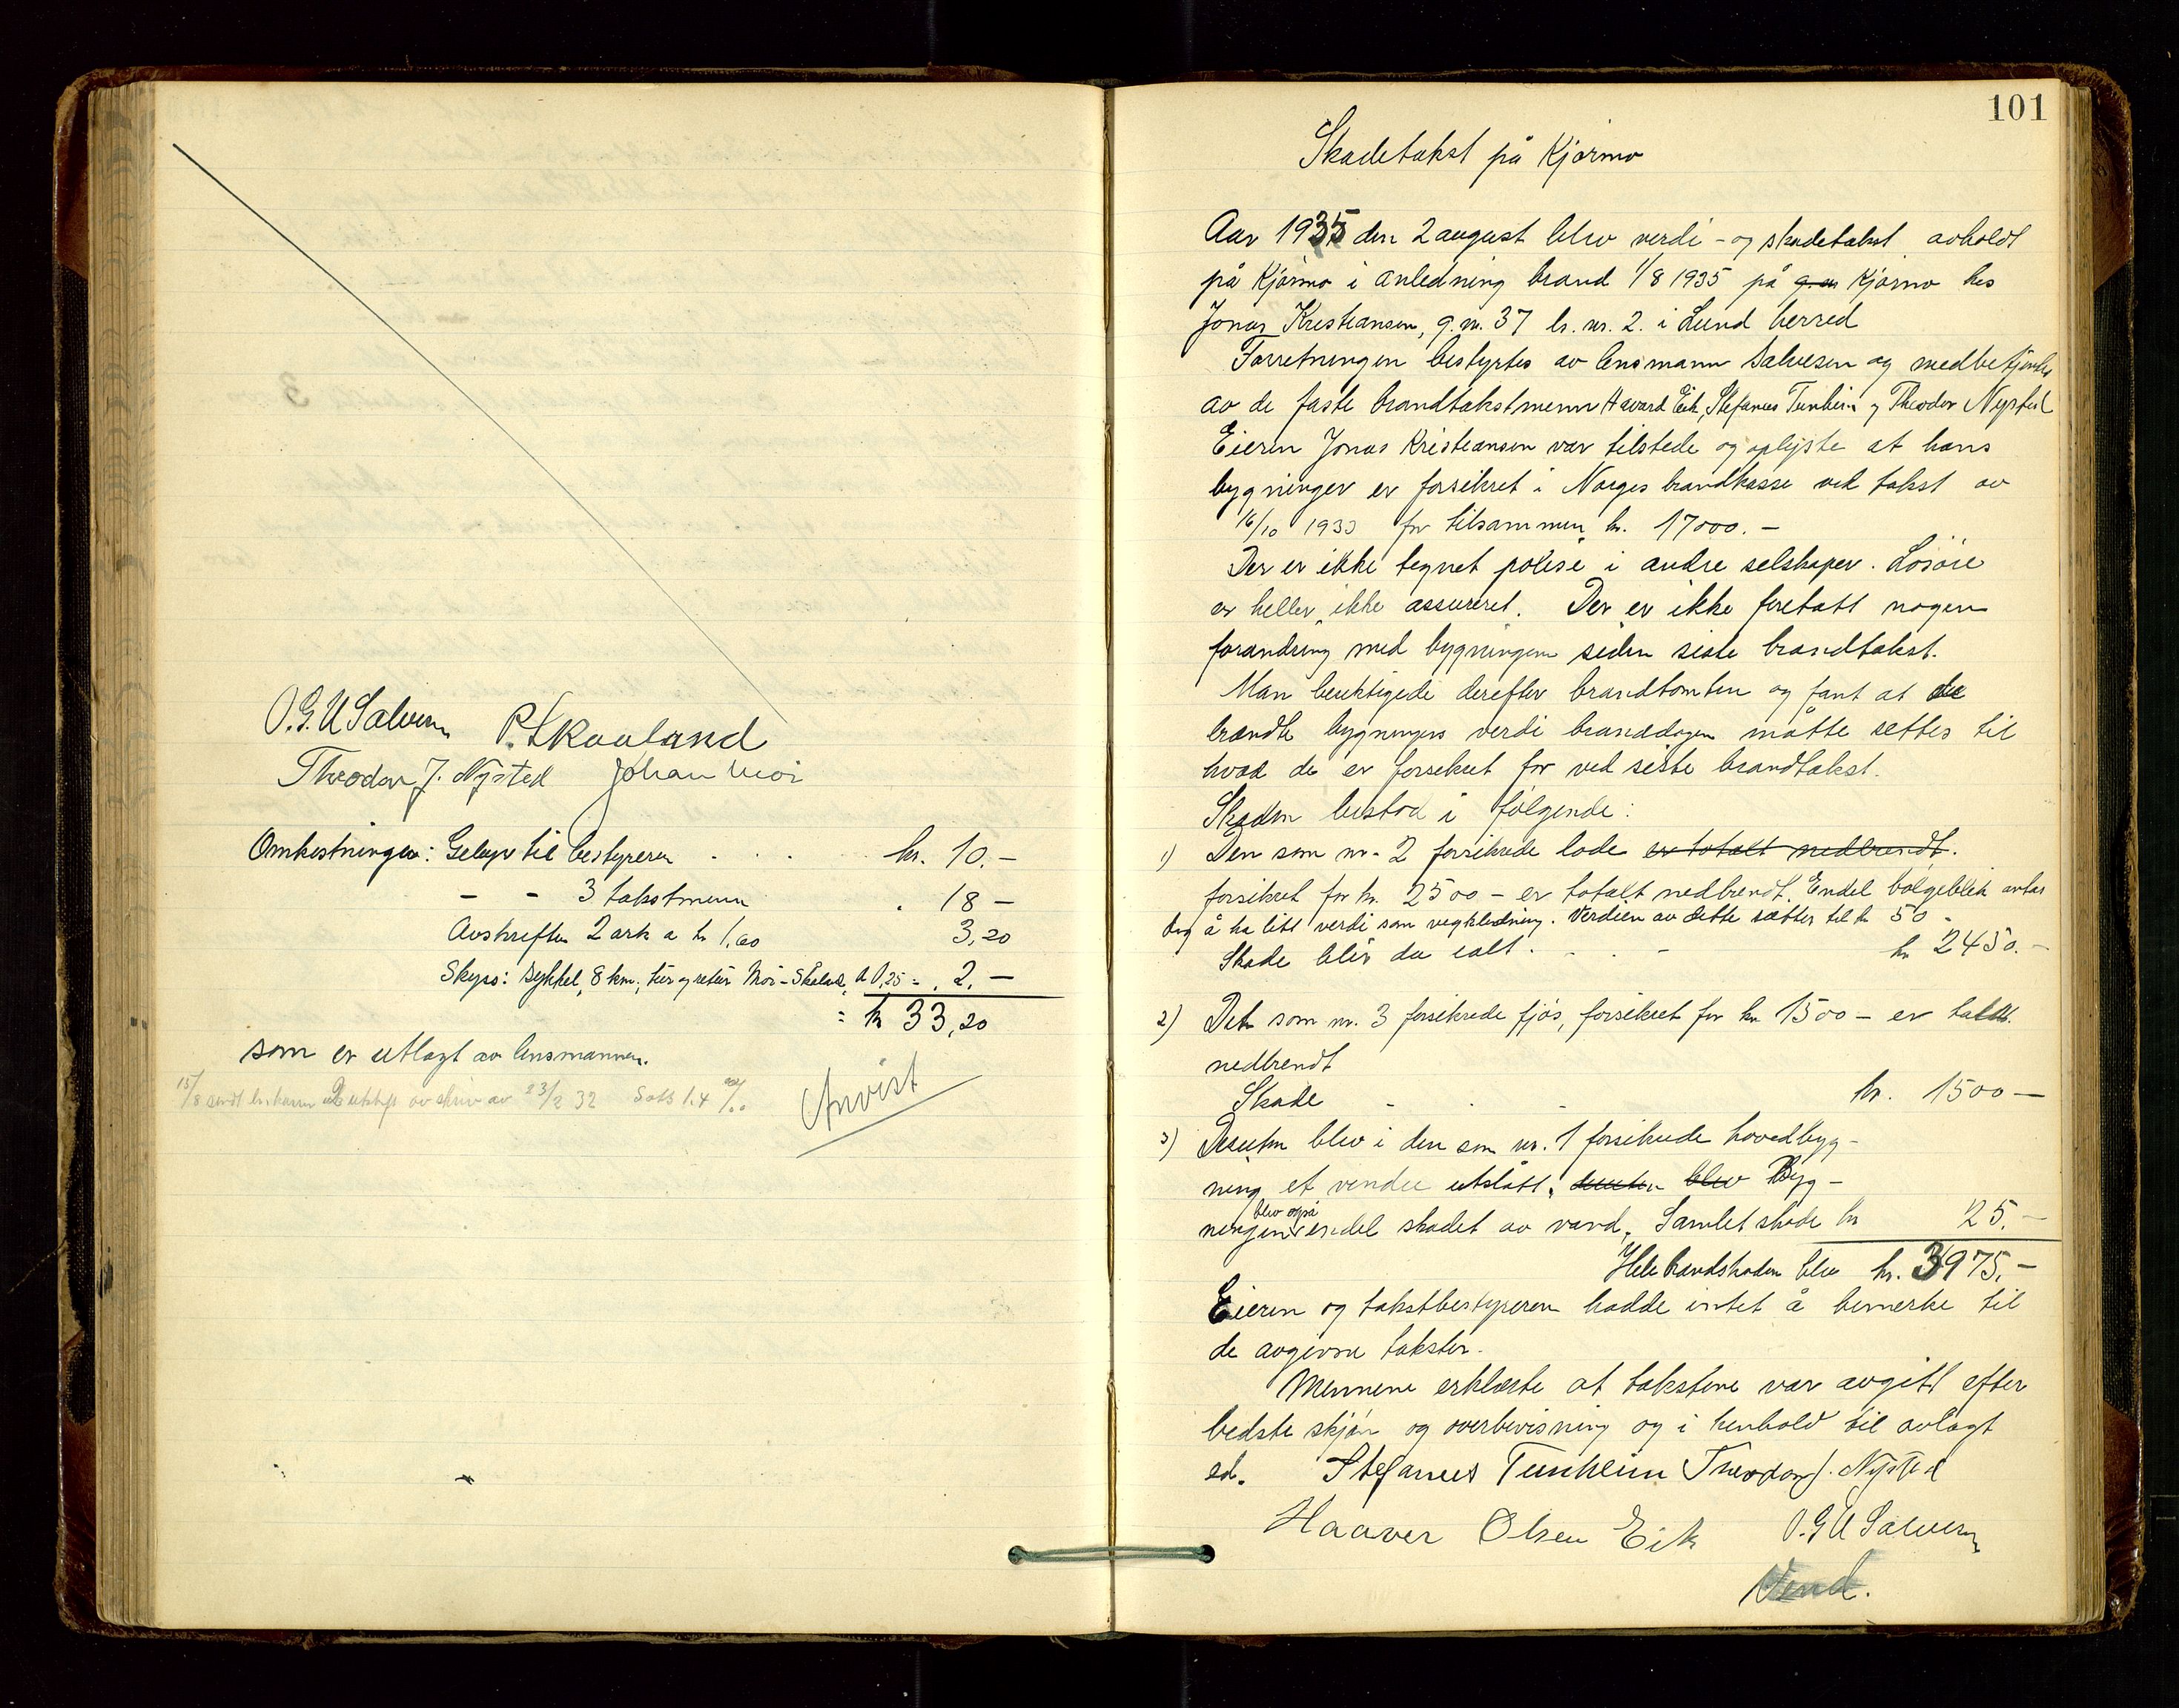 O. G. U Salvesen P. Skaaland
Theodor J. Nysted Johan Moi
Omkostninger: Gebyr til bestyreren . . . kr. 10.-
- - 3 takstmenn . 18 -
Avskrifter 2 ark a kr 1,60 3,20
Skyss: sykkel, 8 km, tur og retur Moi-Skåland, a 0,25 = . 2.-
= kr 33,20
som er utlagt av lensmannen.
15/8 sendt br.kassen 2 utskr av skriv av 23/2 32 Sats 1.4 ‰
Anvist
101
Skadetakst på Kjørmo
Aar 1935 den 2 august blev verdi- og skadetakst avholdt
på Kjørmo i anledning brand 1/8 1935 på g.nr Kjørmo hos
Jonas Kristiansen, g.nr. 37 br. nr. 2. i Lund herred
Forretningen bestyrtes av lensmann Salvesen og medbetjentes
av de faste brandtakstmenn Håvard Eik, Stefanus Tunheim og Theodor Nysted
Eieren Jonas Kristiansen var tilstede og oplyste at hans
bygninger er forsikret i Norges brandkasse ved takst av
16/10 1933 for tilsammen kr. 17000.-
Der er ikke tegnet polise i andre selskaper. Løsøre
er heller ikke assureret. Der er ikke foretatt nogen
forandring med bygningene siden siste brandtakst.
Man besiktigede derefter brandtomten og fant at de
brændte bygningers verdi branddagen måtte settes til
hvad de er forsikret for ved siste brandtakst.
Skaden bestod i følgende:
1) Den som nr. 2 forsikrede lode er totalt nedbrendt.
forsikret for kr. 2500 - er totalt nedbrendt. Endel bølgeblikk antas
dog å ha litt verdi som vegkledning. Verdien av dette sættes til kr 50.-
Skade blir da ialt . . . - kr 2450.-
2) Det som nr. 3 forsikrede fjøs, forsikret for kr 1500 - er totalt
nedbrendt
Skade - . - kr. 1500 -
3) Desuten blev i den som nr. 1 forsikrede hovedbyg-
ning et vindu utslått, desuten blev Byg-
blev også
ningen endel skadet av vand. Samlet skade kr 25.-
Hele brandskaden blev kr. 3975.-
Eieren og takstbestyreren hadde intet å bemerke til
de avgivne takster.
Mennene erklærte at takstene var avgitt efter
bedste skjøn og overbevisning og i henhold til avlagt
ed. Stefanus Tunheim Theodor J. Nysted
Haaver Olsen Eik O. G U Salvesen
Vend.